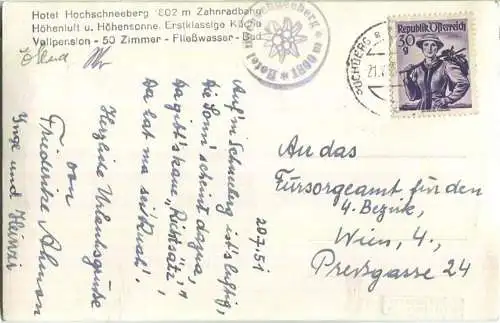 Hotel Hochschneeberg 1802 m Zahnradbahn
Höhenluft u. Höhensonne. Erstklassige Küche
Vollpension - 50 Zimmer - Fließwasser - Bad
Hotel Hochschneeberg 1800 m
BUCHBERG a
Republik Österreich
30 g
20.7.51
Auf'm Schneeberg ist's lustig,
die Sonn' scheint dazua,
Da gibt's kane "Richtsätz",
Da hat ma sei' Ruah!
Herzliche Urlaubsgrüße
von
Friederike
Inge und Heinzi
An das
Fürsorgeamt für den
4. Bezirk,
Wien, 4.,
Pressgasse 24